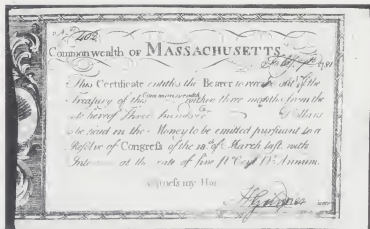 Commonwealth OF MASSACHUSETTS
1781
This Certificate entitles the Bearer to receive out of the
Treasury of this Commonwealth within three months from the
date hereof Three hundred Dollars
to be paid in the Money to be emitted pursuant to a
Resolve of Congress of the 18th of March last, with
Interest at the rate of five Pr Ct Pr Annum.
Witness my Hand